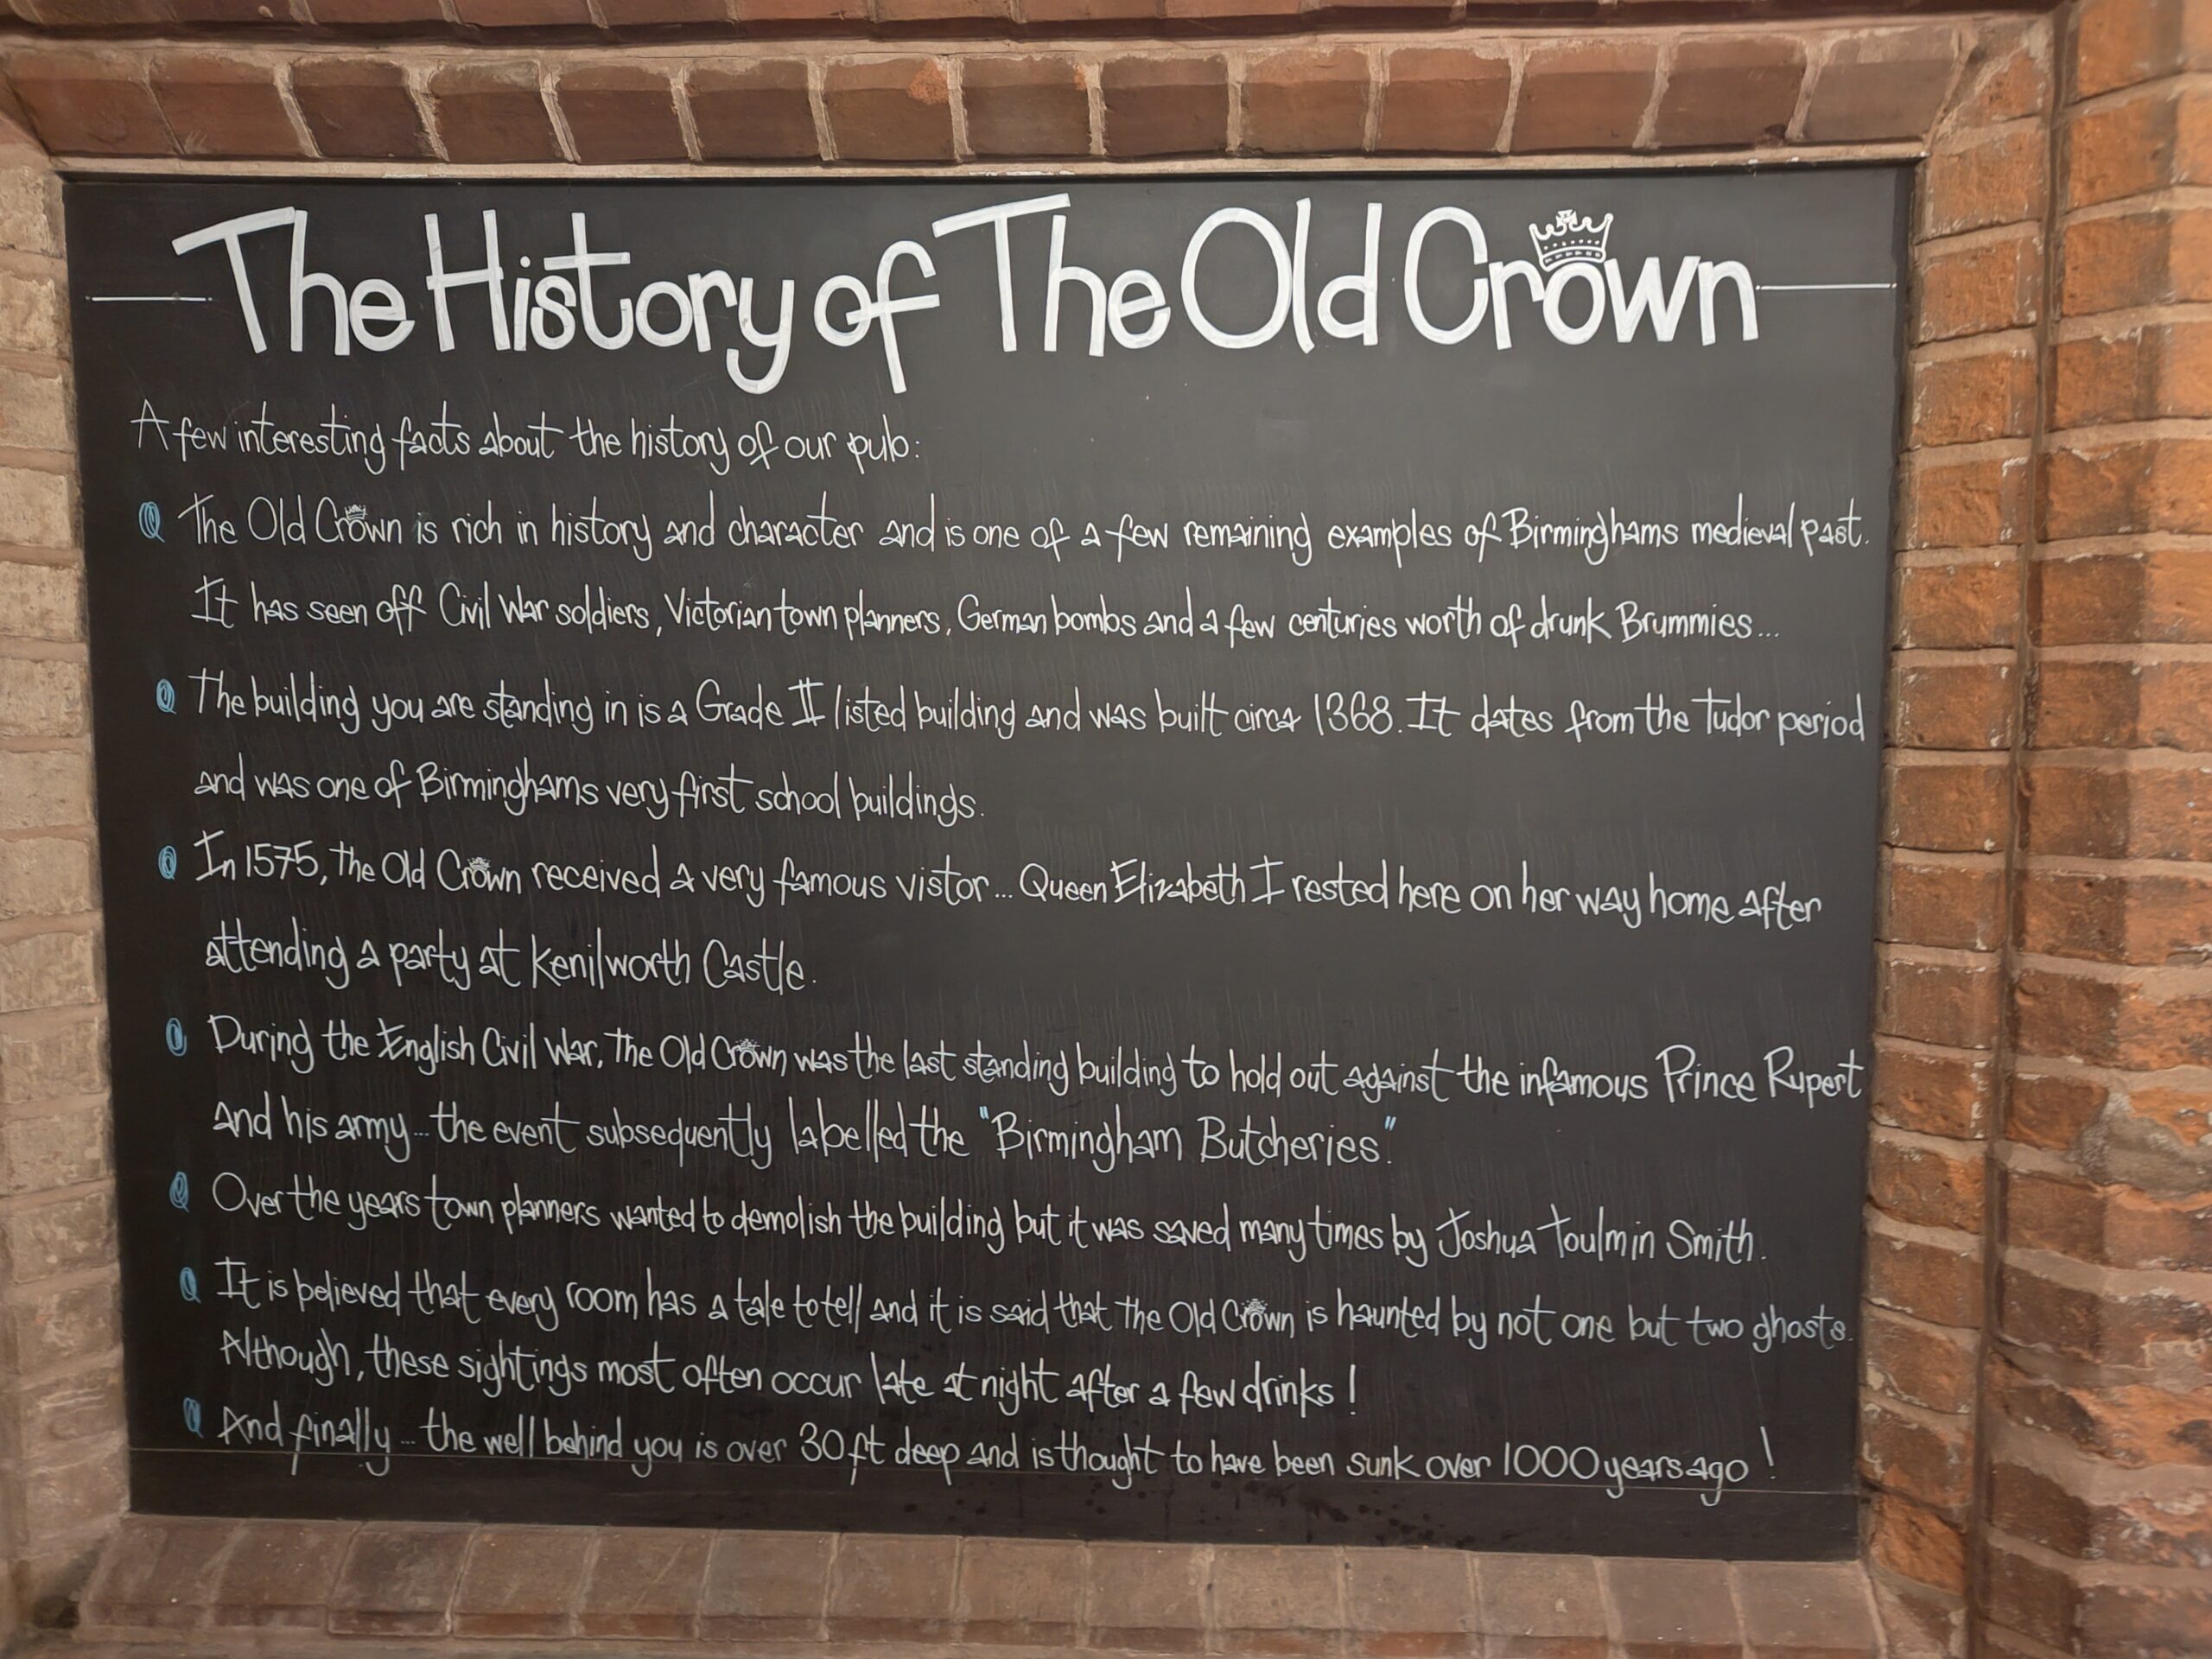 The History of The Old Crown
A few interesting facts about the history of our pub:
The Old Crown is rich in history and character and is one of a few remaining examples of Birminghams medieval past.
It has seen off Civil War soldiers, Victorian town planners, German bombs and a few centuries worth of drunk Brummies...
The building you are standing in is a Grade II listed building and was built circa 1368. It dates from the Tudor period
and was one of Birminghams very first school buildings.
In 1575, the Old Crown received a very famous vistor... Queen Elizabeth I rested here on her way home after
attending a party at Kenilworth Castle.
During the English Civil War, The Old Crown was the last standing building to hold out against the infamous Prince Rupert
and his army... the event subsequently labelled the "Birmingham Butcheries."
Over the years town planners wanted to demolish the building but it was saved many times by Joshua Toulmin Smith.
It is believed that every room has a tale to tell and it is said that the Old Crown is haunted by not one but two ghosts.
Although, these sightings most often occur late at night after a few drinks!
And finally... the well behind you is over 30ft deep and is thought to have been sunk over 1000 years ago!